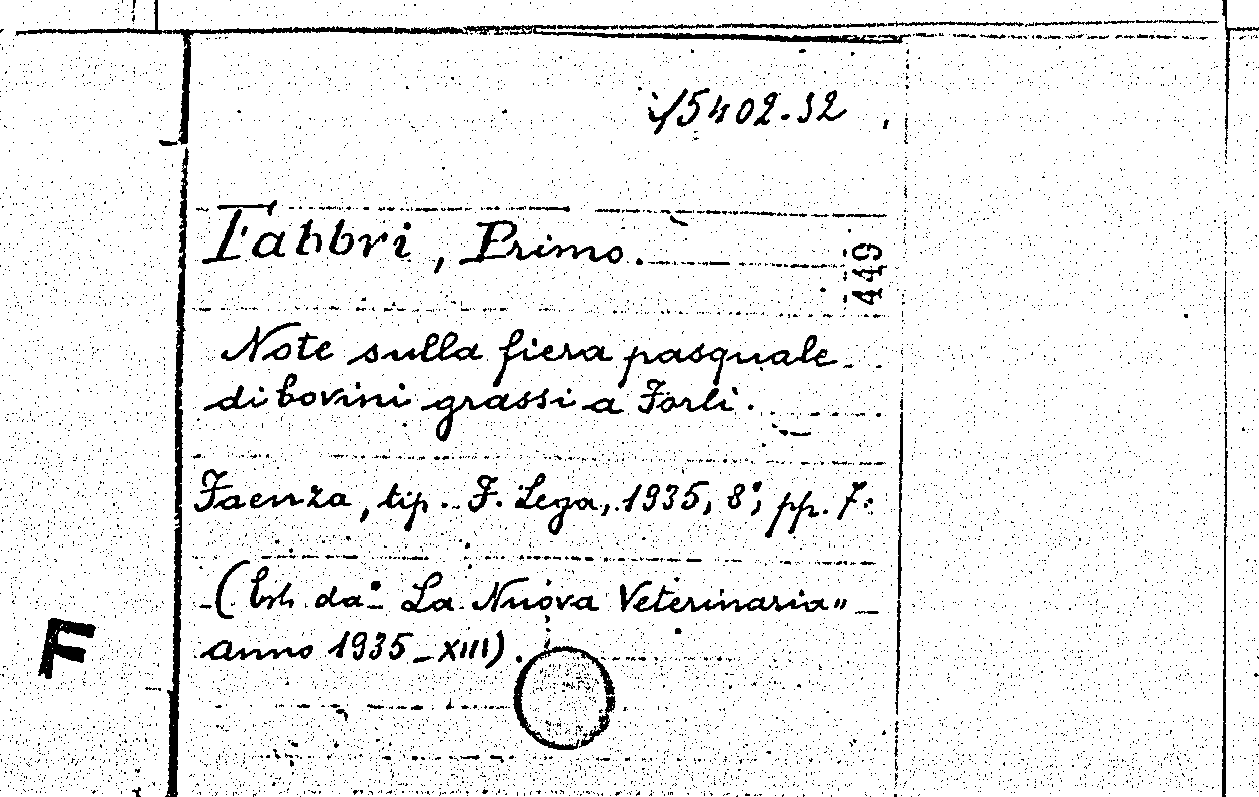 15402.32
Fabbri, Primo.
449
Note sulla fiera pasquale
di bovini grassi a Forlì.
Faenza, tip. F. Lega, 1935, 8°, pp. 7.
(Estr. da "La Nuova Veterinaria"
anno 1935-XIII).
F